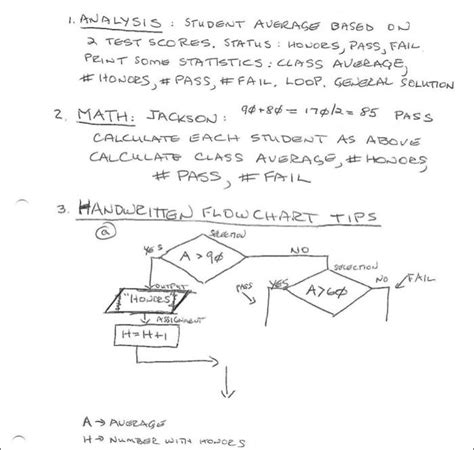 1. ANALYSIS: STUDENT AVERAGE BASED ON
2 TEST SCORES. STATUS: HONORS, PASS, FAIL
PRINT SOME STATISTICS: CLASS AVERAGE,
# HONORS, # PASS, # FAIL. LOOP. GENERAL SOLUTION
2. MATH: JACKSON: 9Ø+8Ø = 17Ø/2 = 85 PASS
CALCULATE EACH STUDENT AS ABOVE
CALCULATE CLASS AVERAGE, # HONORS,
# PASS, # FAIL
3. HANDWRITTEN FLOWCHART TIPS
a
SELECTION
YES
A > 9Ø
NO
SELECTION
OUTPUT
"HONORS"
PASS
YES
A>6Ø
NO
FAIL
ASSIGNMENT
H = H+1
A → AVERAGE
H → NUMBER WITH HONORS